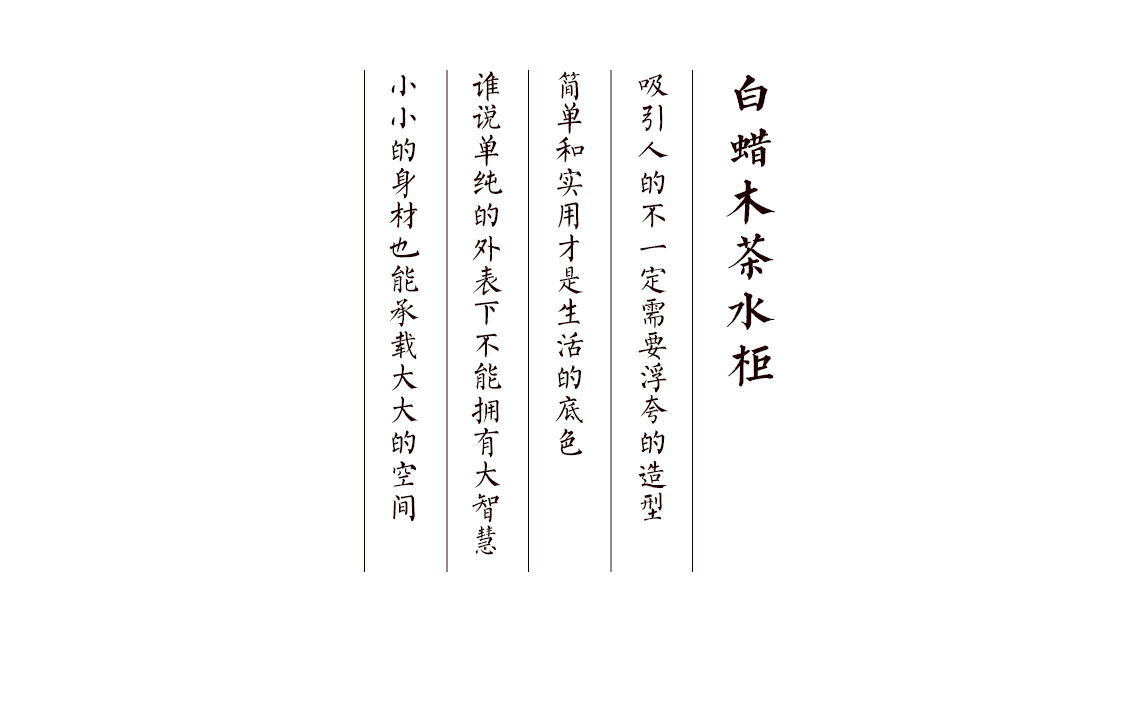 白蜡木茶水柜
吸引人的不一定需要浮夸的造型
简单和实用才是生活的底色
谁说单纯的外表下不能拥有大智慧
小小的身材也能承载大大的空间